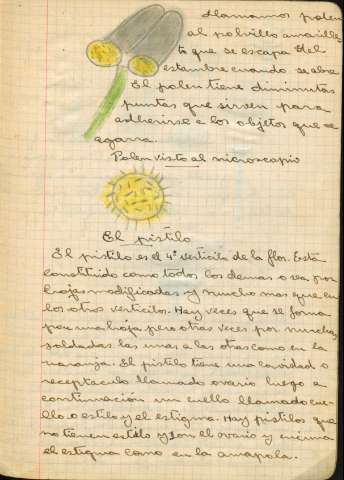 Llamamos polen
al polvillo amarille-
to que se escapa del
estambre cuando se abre
El polen tiene diminutas
puntas que sirven para
adherirse a los objetos que se
agarra.
Polen visto al microscopio
El pistilo
El pistilo es el 4º verticilo de la flor. Está
constituido como todos los demas o sea por
hojas modificadas y mucho mas que en
los otros verticilos. Hay veces que se forma
por una hoja pero otras veces por muchas
soldadas las unas a las otras como en la
naranja. El pistilo tiene una cavidad o
receptaculo llamado ovario luego a
continuación un cuello llamado cue-
llo o estilo y el estigma. Hay pistilos que
no tienen estilo y son el ovario y encima
el estigma como en la amapola.